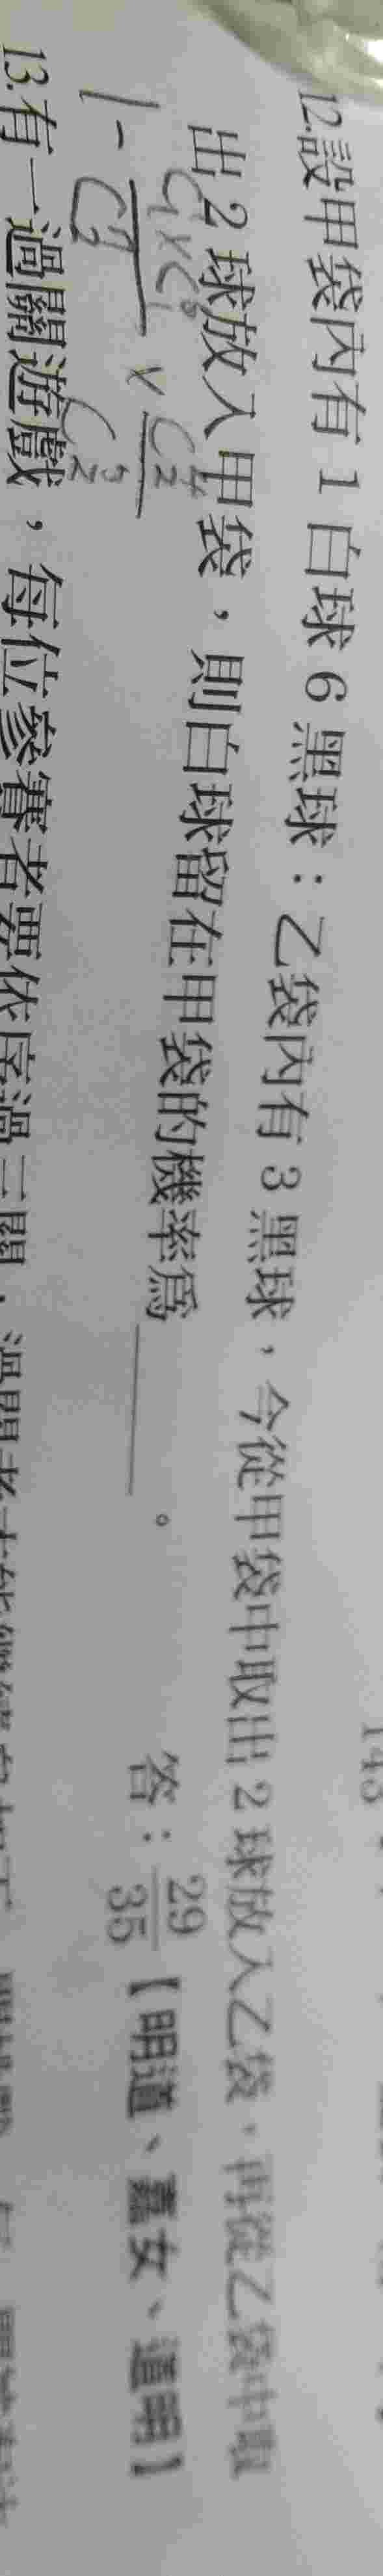 143
12.設甲袋內有 1 白球 6 黑球：乙袋內有 3 黑球，今從甲袋中取出 2 球放入乙袋，再從乙袋中取
出 2 球放入甲袋，則白球留在甲袋的機率為______。 答：29/35【明道、嘉女、道明】
1 - C₁¹×C₁⁶/C₂⁷ × C₂⁴/C₂⁵
13.有一過關遊戲，每位參賽者要依序過三關，過關者才能繼續